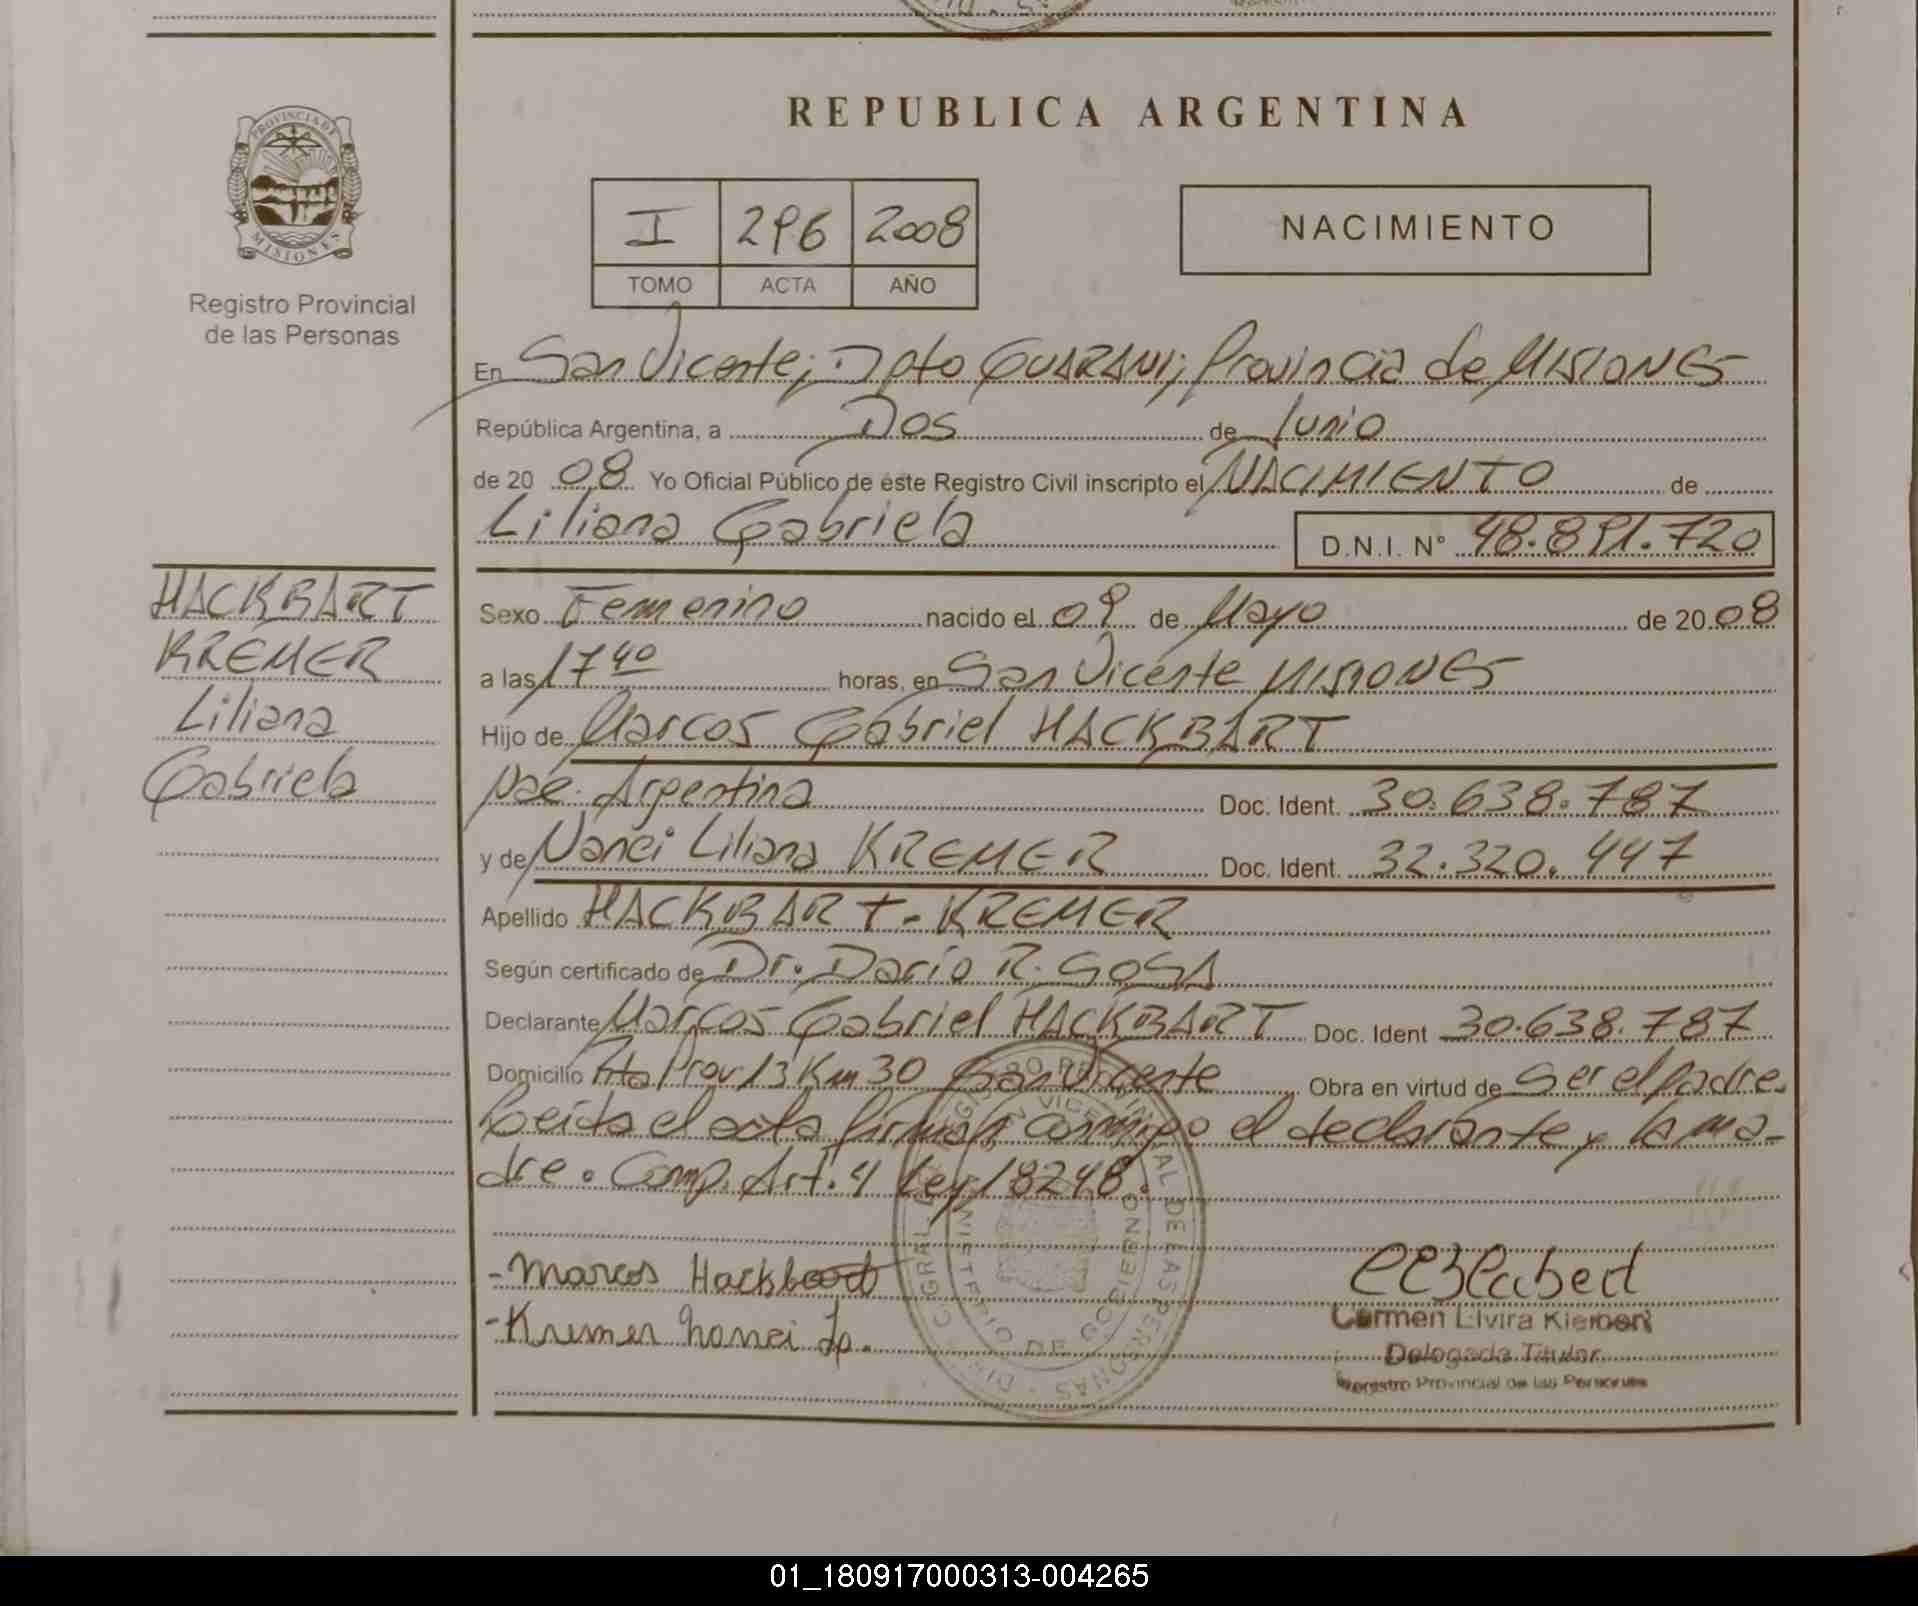 REPUBLICA ARGENTINA
PROVINCIA DE
MISIONES
Registro Provincial
de las Personas
I 296 2008
TOMO ACTA AÑO
NACIMIENTO
En San Vicente; Dpto GUARANI; Provincia de MISIONES
República Argentina, a Dos de Junio
de 20 08 Yo Oficial Público de este Registro Civil inscripto el NACIMIENTO de
Liliana Gabriela D.N.I. N° 48.891.720
HACKBART
KREMER
Liliana
Gabriela
Sexo Femenino nacido el 09 de Mayo de 20 08
a las 17 40 horas, en San Vicente MISIONES
Hijo de Marcos Gabriel HACKBART
Nac. Argentina Doc. Ident. 30.638.787
y de Nanci Liliana KREMER Doc. Ident. 32.320.447
Apellido HACKBART - KREMER
Según certificado de Dr. Dario R. SOSA
Declarante Marcos Gabriel HACKBART Doc. Ident 30.638.787
Domicilio Rta Prov 13 Km 30 San Vicente Obra en virtud de Ser el padre.
Leida el acta firman conmigo el declarante y la ma-
dre. Comp. Art. 4 Ley 18248.
- Marcos Hackbart
- Kremer Nanci
Carmen Elvira
Delegada Titular
Registro Provincial de las Personas
01_180917000313-004265